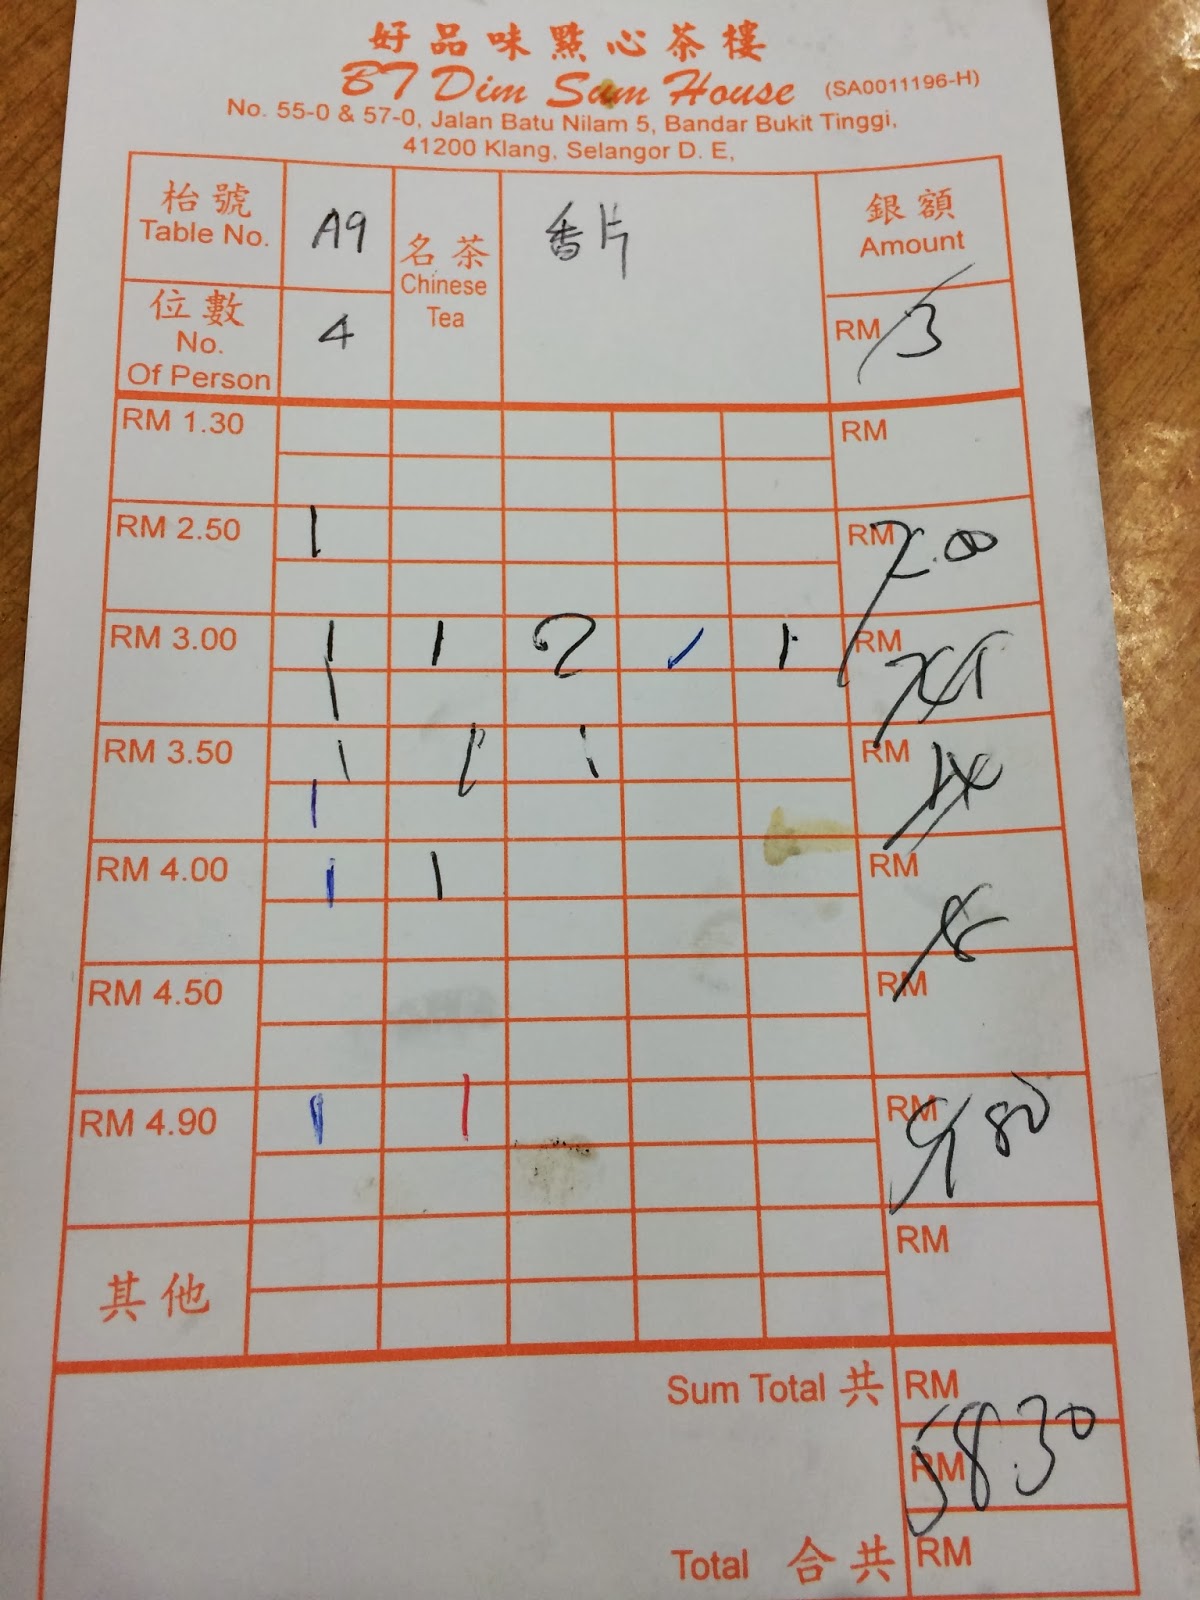 好品味點心茶樓
BT Dim Sum House (SA0011196-H)
No. 55-0 & 57-0, Jalan Batu Nilam 5, Bandar Bukit Tinggi,
41200 Klang, Selangor D. E,
枱號 Table No. A9
名茶 Chinese Tea 香片
銀額 Amount
位數 No. Of Person 4
RM 3
RM 1.30 RM
RM 2.50 1 RM
RM 3.00 1 1 2 / 1 RM
1
RM 3.50 1 1 1 RM 14
1
RM 4.00 1 1 RM 8
RM 4.50 RM
RM 4.90 1 1 RM 9 80
其他 RM
Sum Total 共 RM
RM 58.30
Total 合共 RM